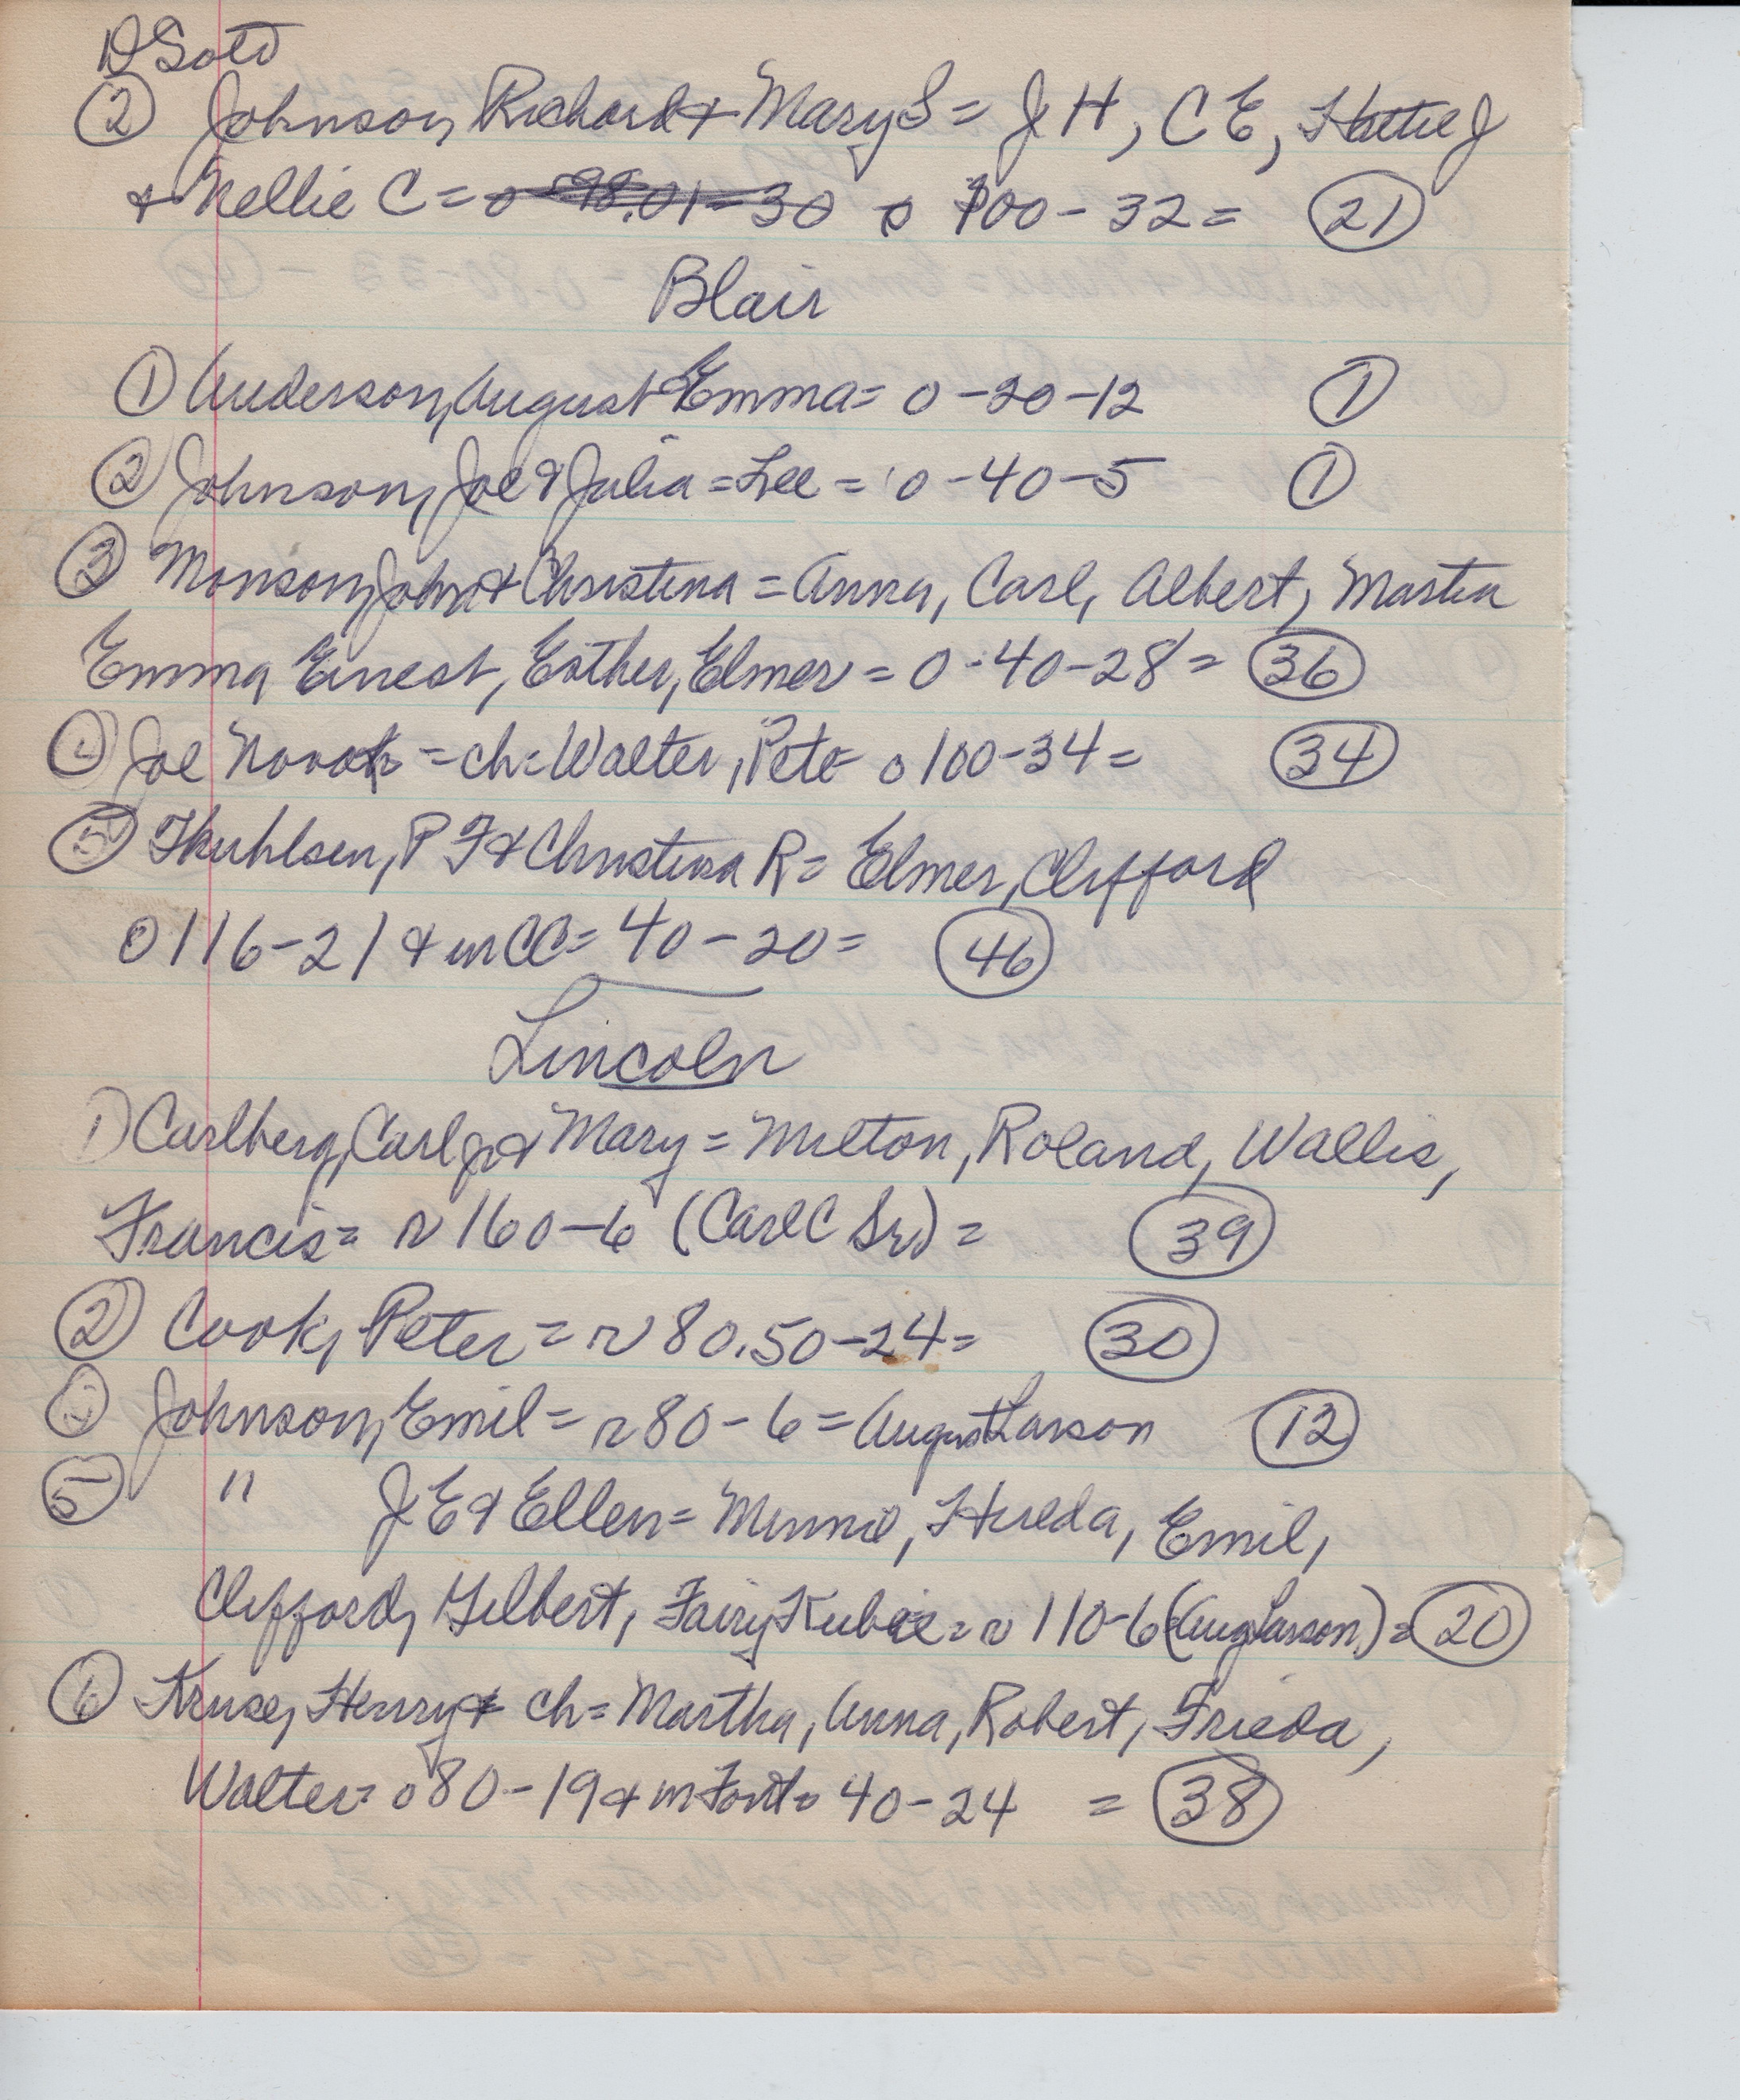 D Soto
② Johnson, Richard & Mary S = J H, C E, Hattie J
& Nellie C = o 98.01 - 30 o 100 - 32 = ㉑
Blair
① Anderson, August & Emma = o - 20 - 12 ①
② Johnson, Joe & Julia = Lee = o - 40 - 5 ①
③ Monson, John & Christina = Anna, Carl, Albert, Martin
Emma Ernest, Esther, Elmer = o - 40 - 28 = ㊱
④ Joe Novak = ch = Walter, Pete o 100 - 34 = ㉞
⑤ Thuhlsen, P F & Christina R = Elmer, Clifford
o 116 - 21 & in CC = 40 - 20 = ㊻
Lincoln
1) Carlberg, Carl Jr & Mary = Milton, Roland, Wallis,
Francis = r 160 - 6 (Carl C Sr) = ㊴
② Cook, Peter = r 80.50 - 24 = ㉚
Johnson, Emil = r 80 - 6 = August Larson ⑫
⑤ " J E & Ellen = Minnie, Hulda, Emil,
Clifford, Gilbert, Fairy Kubie = r 110 - 6 (Aug Larson) = ⑳
⑥ Kruse, Henry & ch = Martha, Anna, Robert, Frieda,
Walter = o 80 - 19 & in Font = 40 - 24 = ㊳